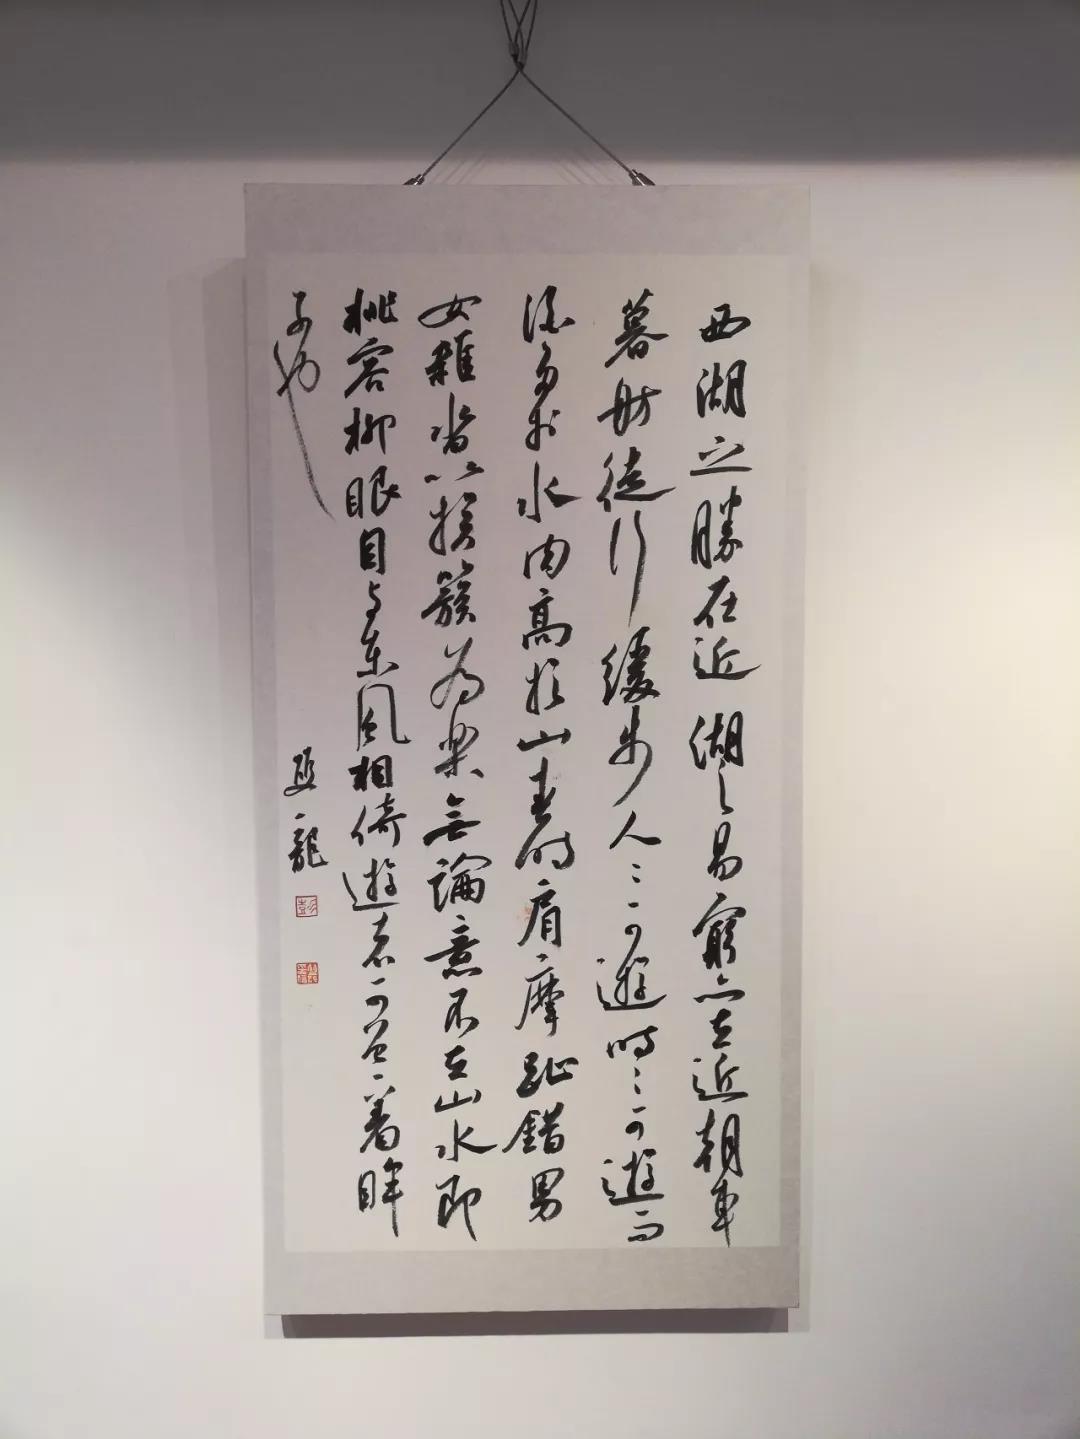 西湖之勝在近湖之易窮亦在近朝車
暮舫徒行緩步人〻可遊時〻可遊而
酒多於水肉高於山春時肩摩趾錯男
女雜沓以挨簇為樂無論意不在山水即
桃容柳眼自与東風相倚遊者何曾一着眸
子也
一龍
彭